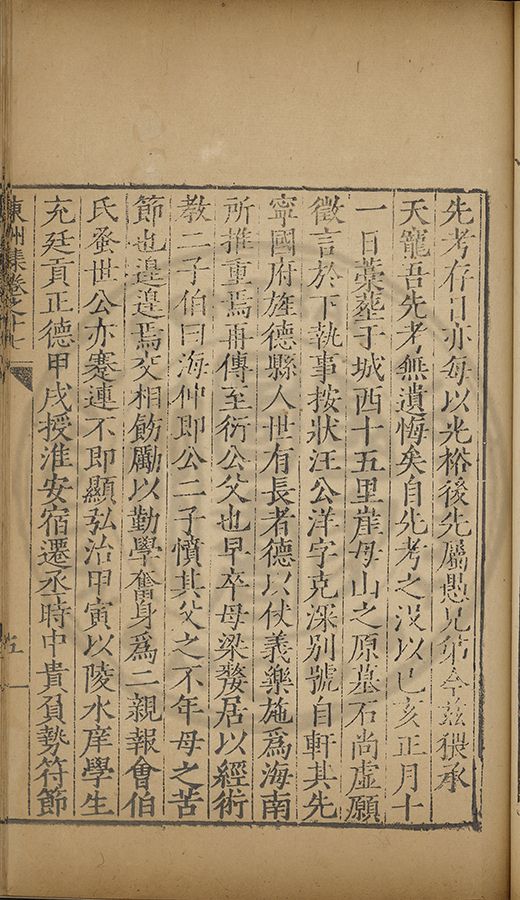 先考存日亦每以光裕後先屬愚兄弟今茲猥承
天寵吾先考無遺悔矣自先考之沒以己亥正月十
一日藁葬于城西十五里崖母山之原墓石尚虛願
徵言於下執事按狀汪公洋字克深別號自軒其先
寧國府旌德縣人世有長者德以伏義樂施為海南
所推重焉再傳至衍公父也早卒母梁嫠居以經術
教二子伯曰海仲即公二子憤其父之不年母之苦
節也遑遑焉交相飭勵以勤學奮身爲二親報會伯
氏蚤世公亦蹇連不即顯弘治甲寅以陵水庠學生
充廷貢正德甲戌授淮安宿遷丞時中貴負勢符節
東州集卷之十七